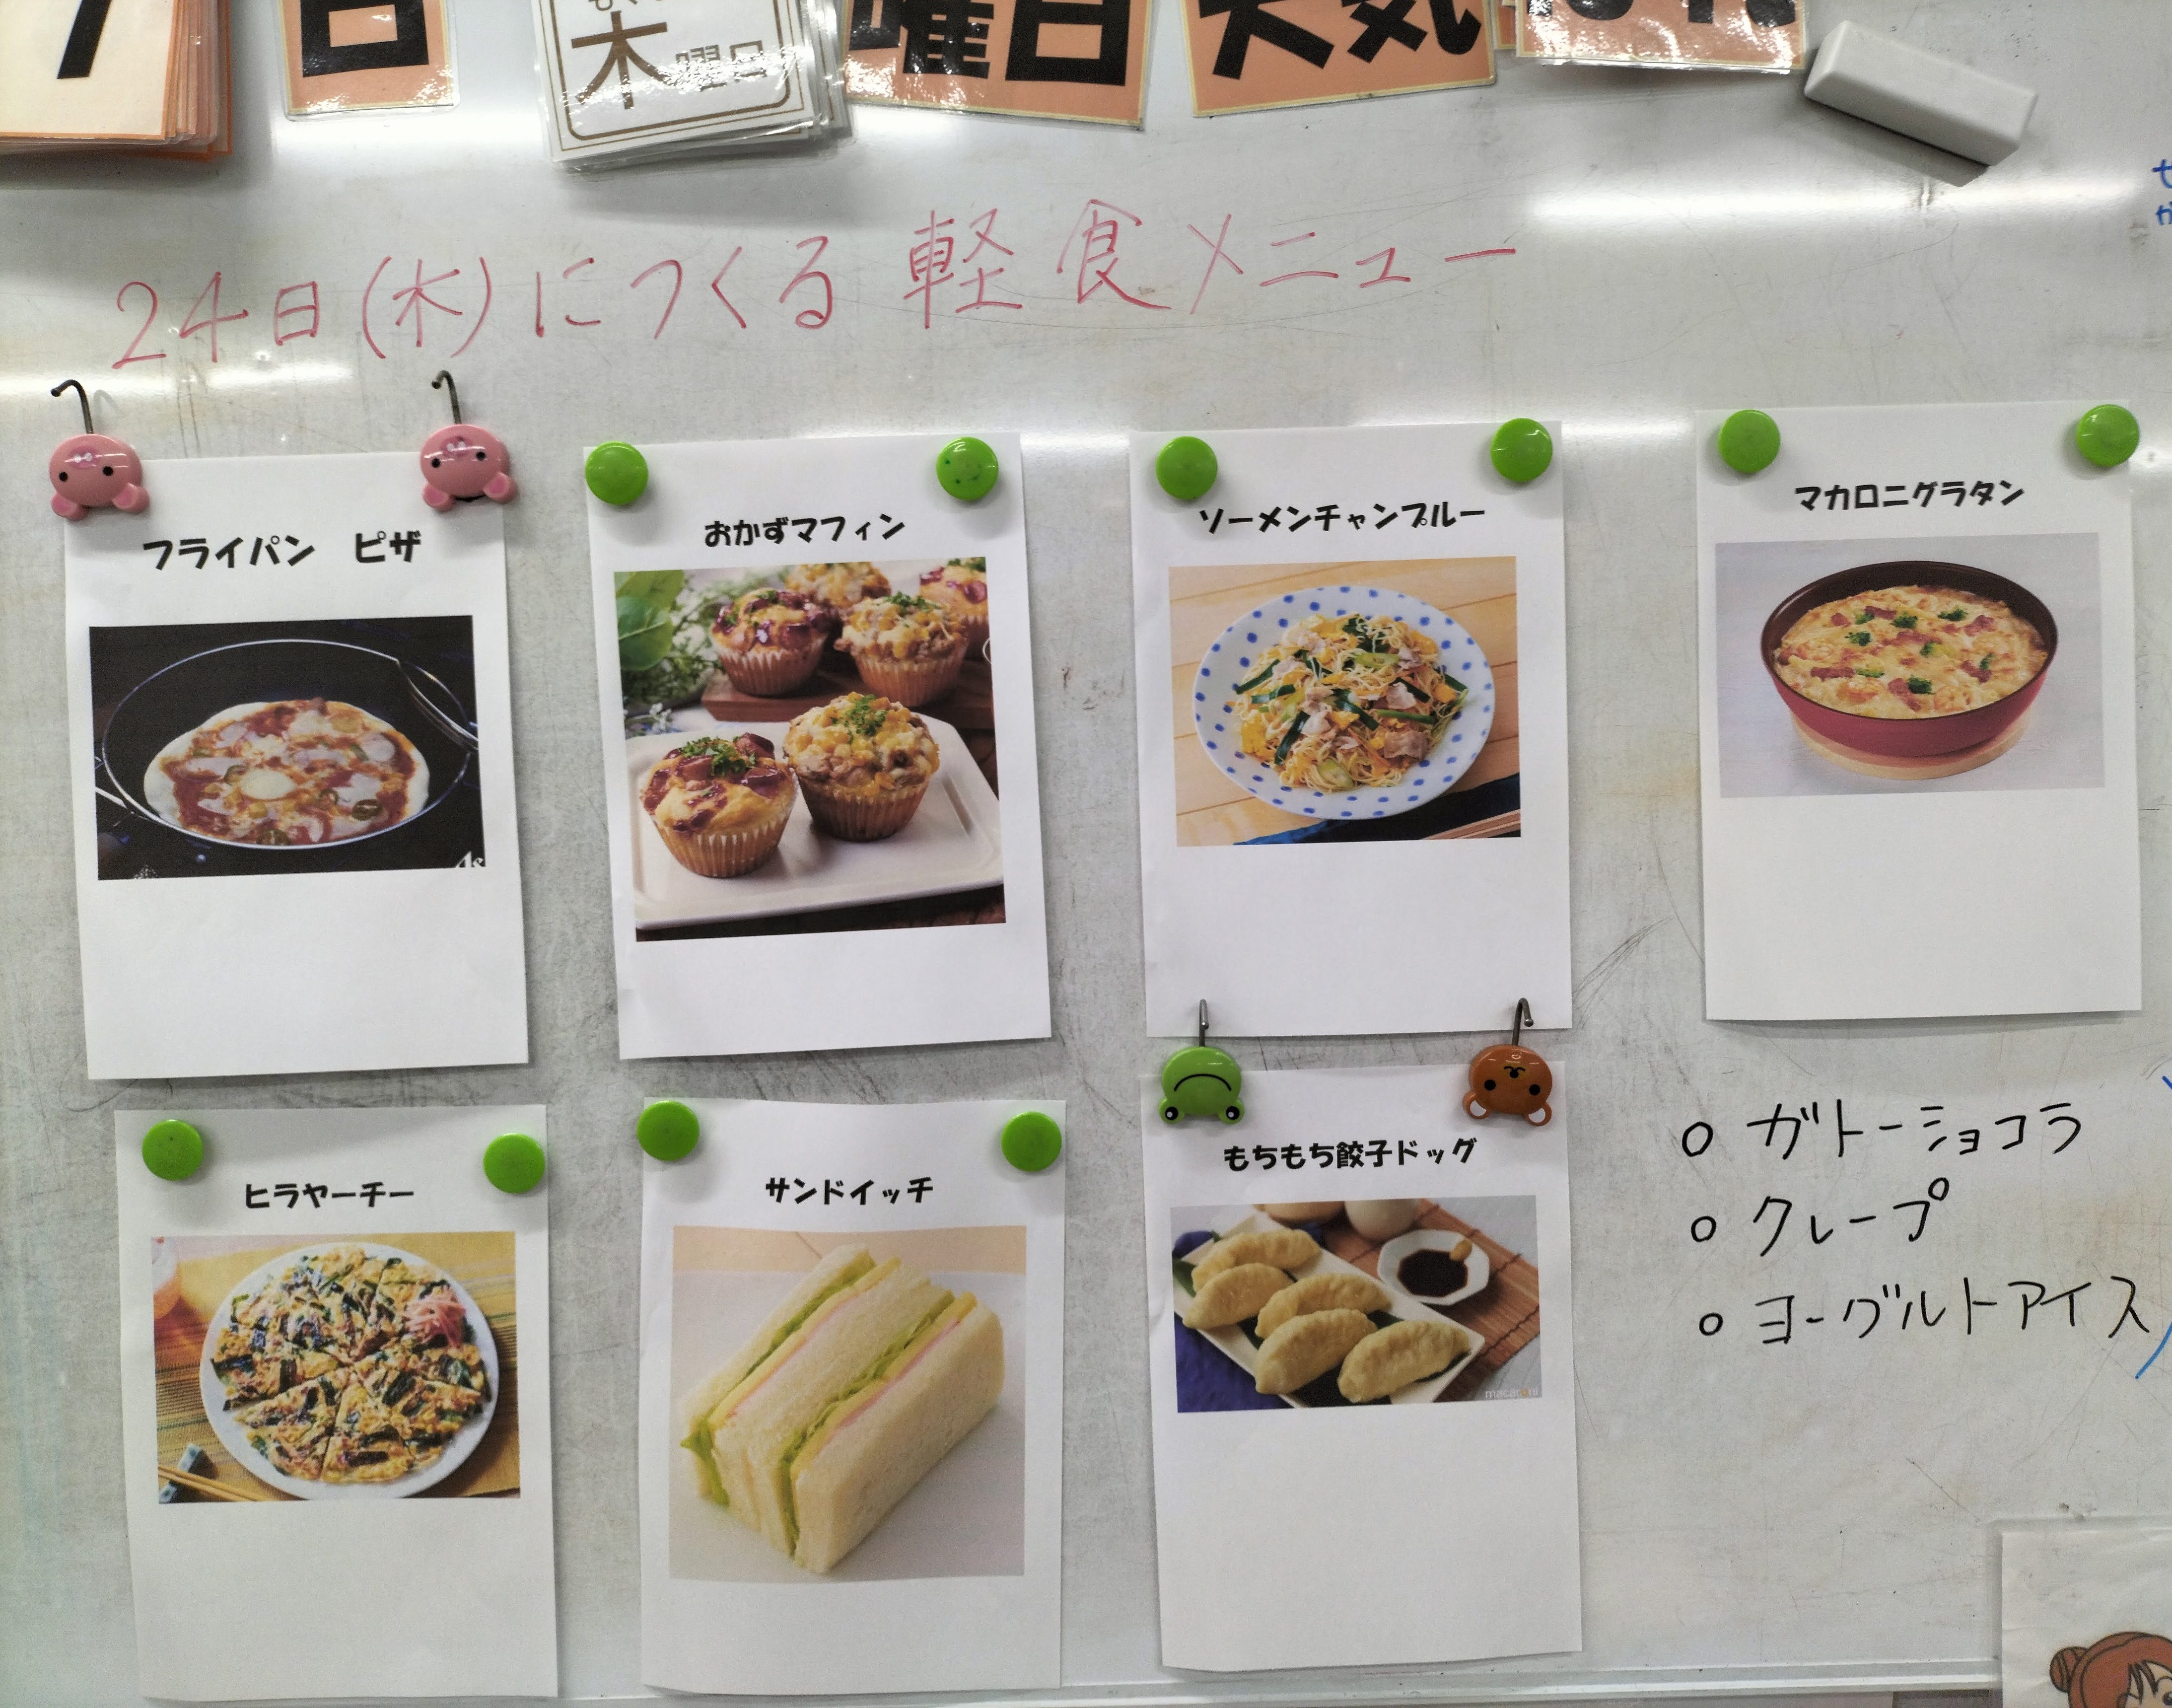 7 日 木曜日 曜日 天気
24日(木)につくる 軽食メニュー
フライパン ピザ
おかずマフィン
ソーメンチャンプルー
マカロニグラタン
ヒラヤーチー
サンドイッチ
もちもち餃子ドッグ
macaroni
○ ガトーショコラ
○ クレープ
○ ヨーグルトアイス